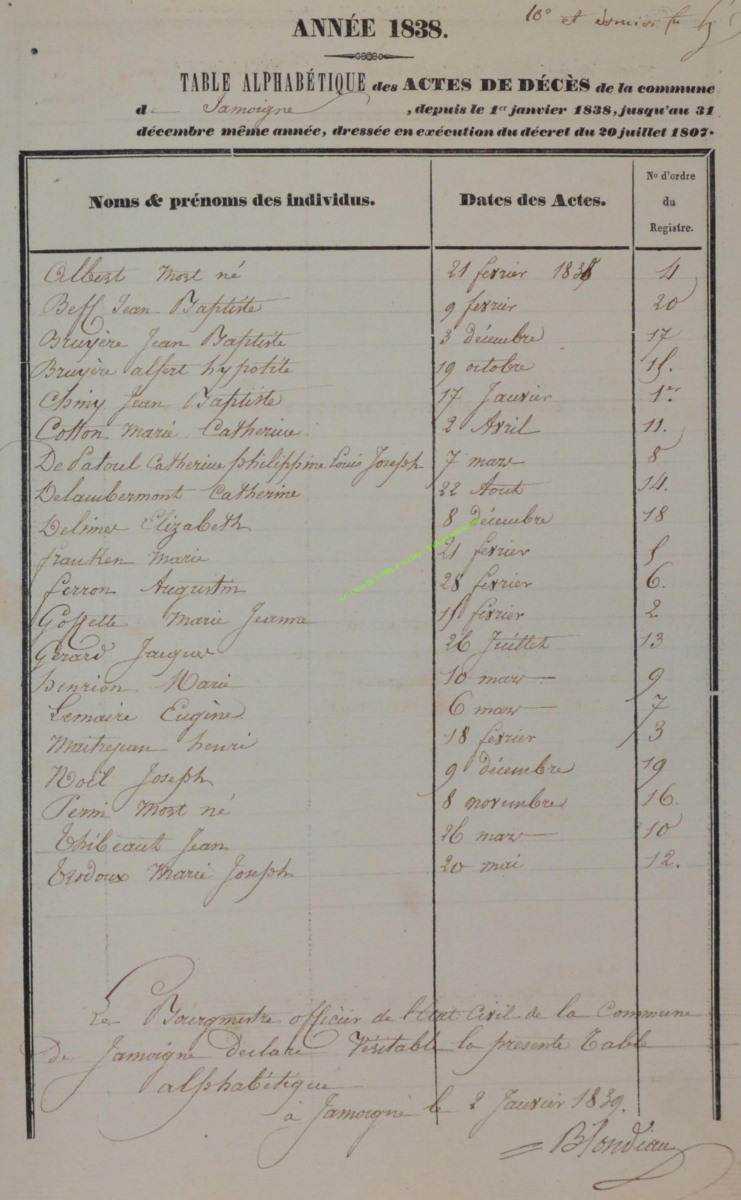 10e et dernier
ANNÉE 1838.
TABLE ALPHABÉTIQUE des ACTES DE DÉCÈS de la commune
de Jamoigne , depuis le 1er janvier 1838, jusqu'au 31
décembre même année, dressée en exécution du décret du 20 juillet 1807.
Noms & prénoms des individus. Dates des Actes. No d'ordre du Registre.
Albert Mort né 21 fevrier 1838 4
Beff Jean Baptiste 9 fevrier 20
Bruyère Jean Baptiste 3 décembre 17
Bruyère alfert hypotite 19 octobre 15.
Chiny Jean Baptiste 17 Janvier 1er
Cotton Marie Catherine 2 Avril 11.
De Patoul Catherine philippine Louis Joseph 7 mars 8
Delambermont Catherine 22 Aout 14.
Elizabeth 8 décembre 18
franken Marie 21 fevrier 5
ferron Augustin 28 fevrier 6.
Goffette Marie Jeanne 15 fevrier 2
Gerard Jacques 26 Juillet 13
henrion Marie 10 mars 9
Lemaire Eugène 6 mars 7
Maitrejean henri 18 fevrier 3
Noël Joseph 9 décembre 19
Pierri Mort né 8 novembre 16.
Thibeaut Jean 26 mars 10
Marie Joseph 20 mai 12.
Le Bourgmestre officier de l'Etat Civil de la Commune
De Jamoigne Declare Véritable la presente Table
alphabétique
à Jamoigne le 2 Janvier 1839.
Blondiau